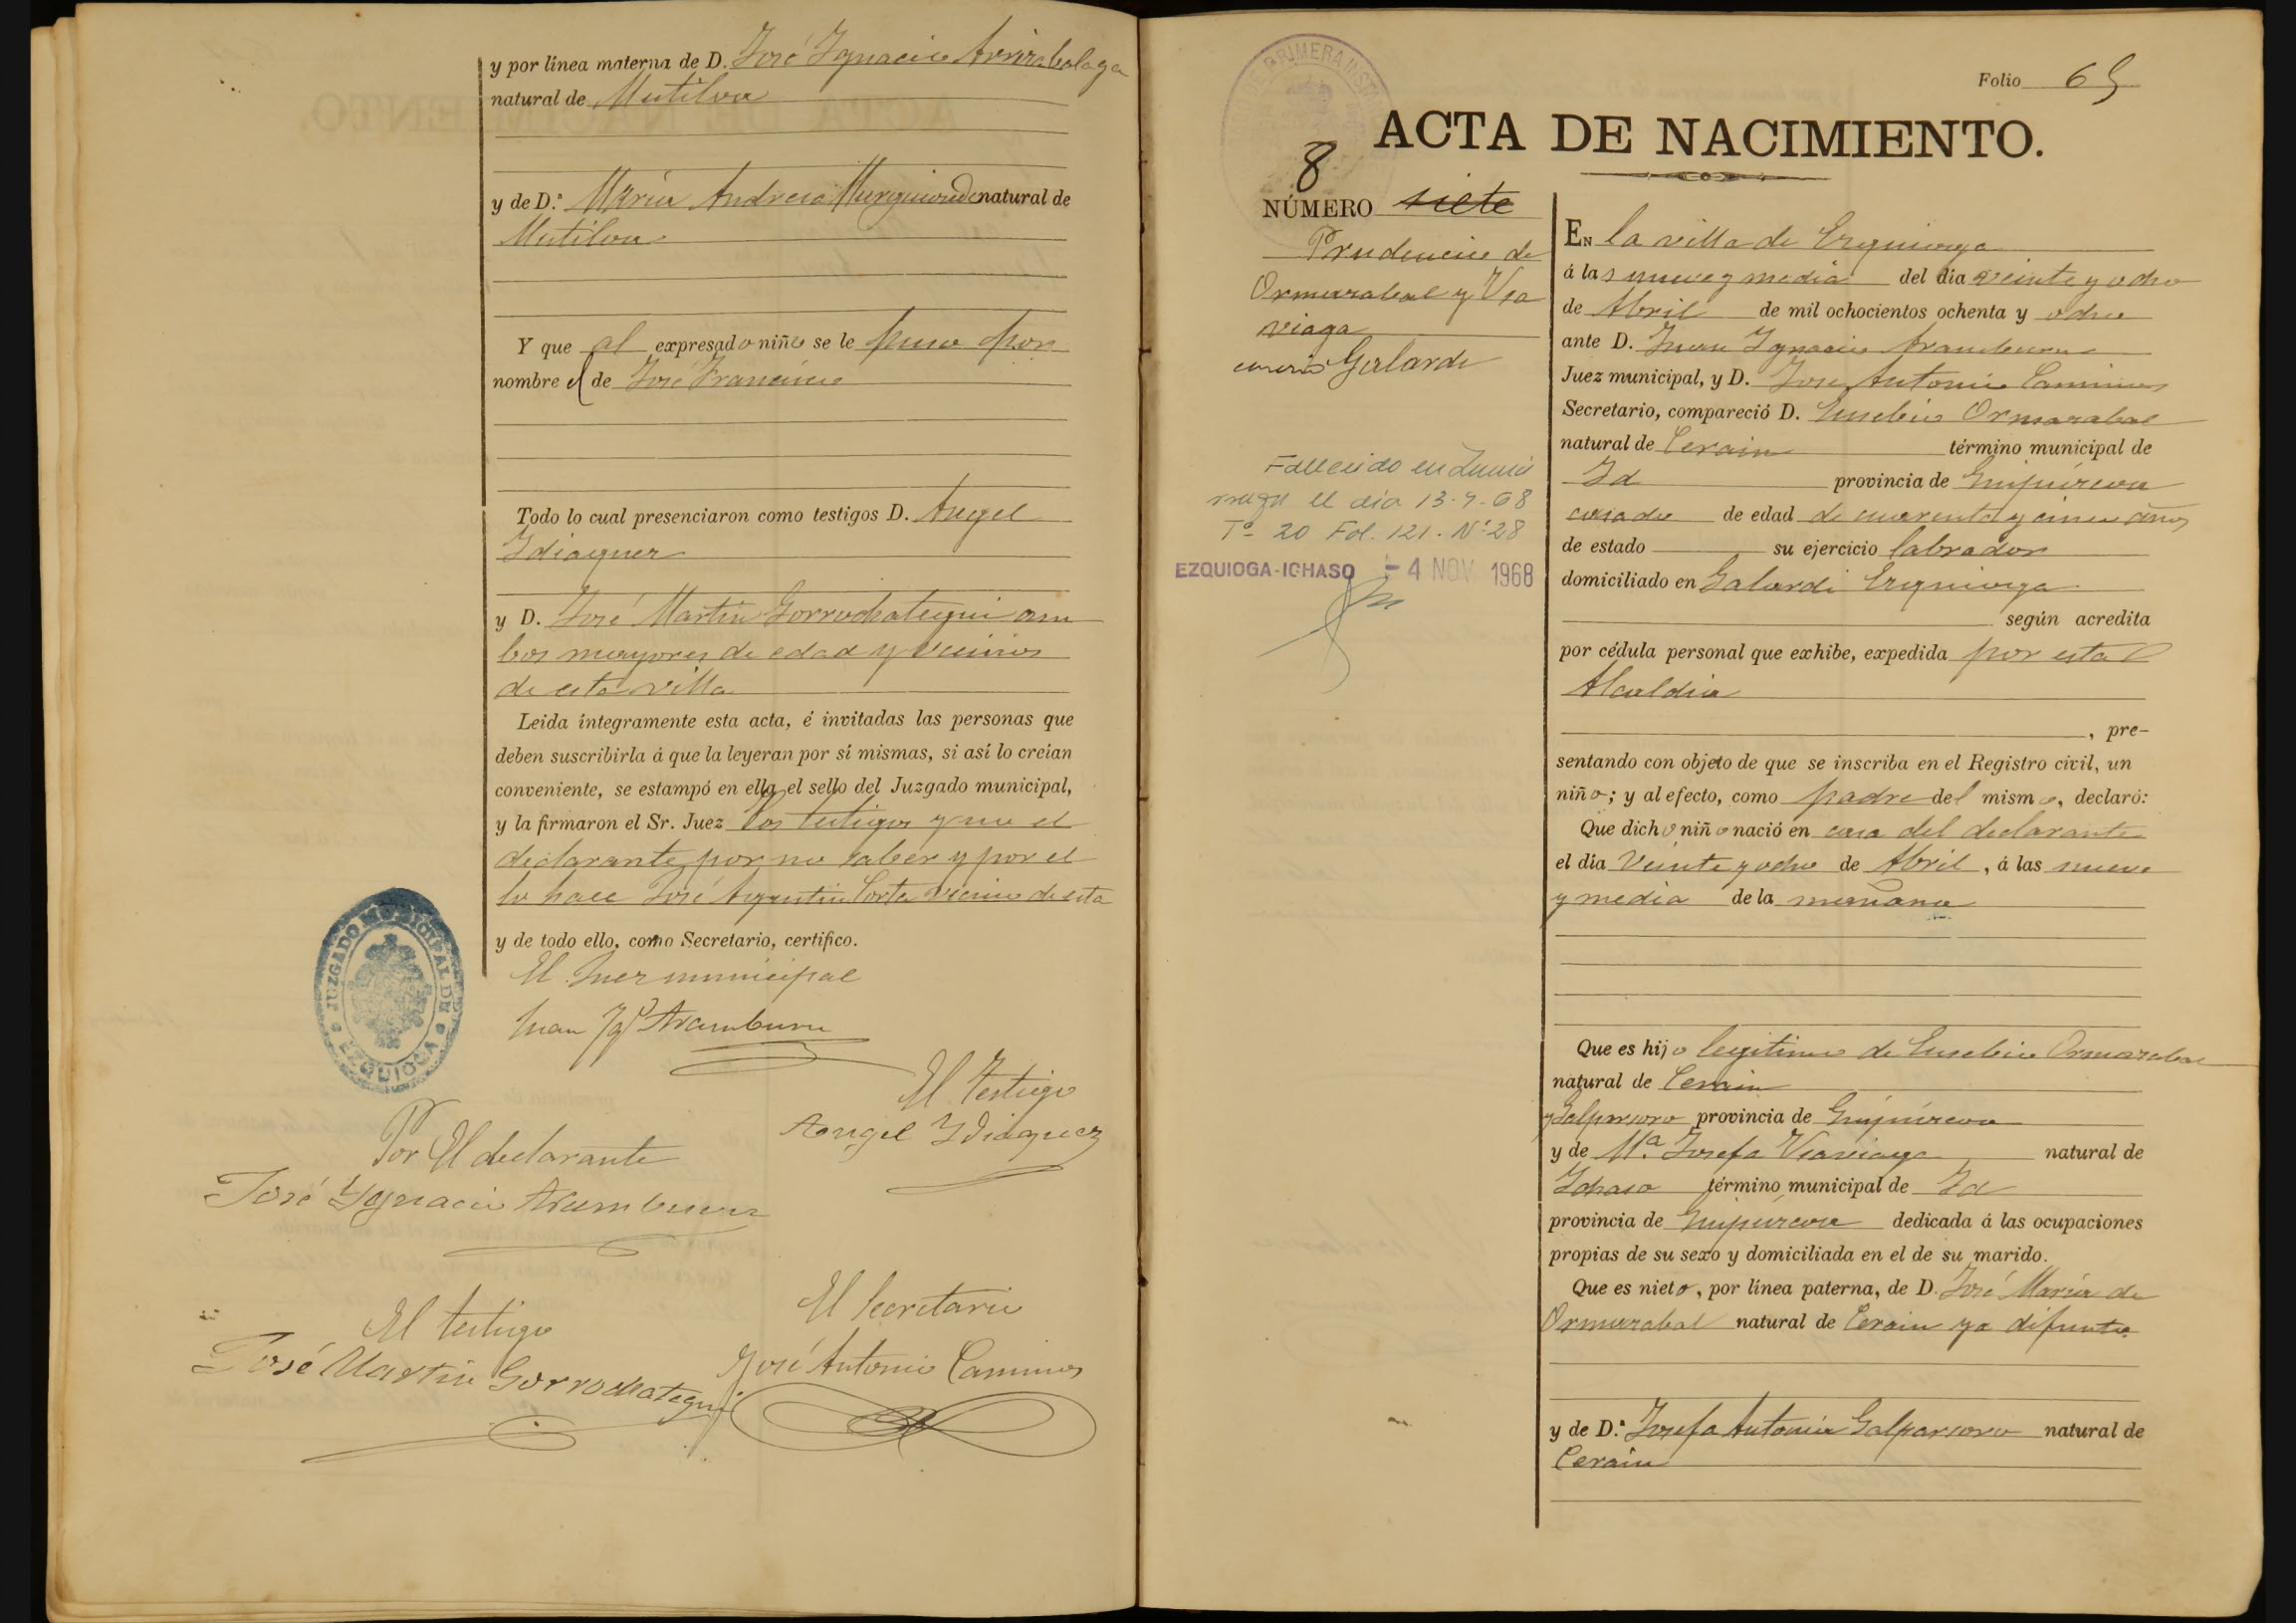 y por línea materna de D. José Ygnacio Arrizabalaga
natural de Mutiloa
y de D.ª María Andresa natural de
Mutiloa
Y que al expresado niño se le puso por
nombre el de José Francisco
Todo lo cual presenciaron como testigos D. Angel
Ydiaquez
y D. José Martin Gorrochategui am
bos mayores de edad y vecinos
de esta villa
Leida íntegramente esta acta, é invitadas las personas que
deben suscribirla á que la leyeran por sí mismas, si así lo creían
conveniente, se estampó en ella el sello del Juzgado municipal,
y la firmaron el Sr. Juez los testigos y no el
declarante por no saber y por el
lo hace José Agustin vecino de esta
y de todo ello, como Secretario, certifico.
El Juez municipal
Juan Ygº Aramburu
JUZGADO MUNICIPAL DE EZQUIOGA
El testigo
Angel Ydiaquez
Por El declarante
José Ygnacio Aramburu
El testigo
José Martin Gorrochategui
El Secretario
José Antonio Caminos
DE PRIMERA INST
Folio 65
ACTA DE NACIMIENTO.
8
NÚMERO siete
Prudencio de
Ormazabal y Via
viaga
caserio Galardi
Fallecido en Zumá
rraga el día 13-9-68
Tº 20 Fol. 121. Nº 28
EZQUIOGA-ICHASO - 4 NOV. 1968
EN la villa de Ezquioga
á las nueve y media del dia veinte y ocho
de Abril de mil ochocientos ochenta y ocho
ante D. Juan Ygnacio Aramburu
Juez municipal, y D. Jose Antonio Caminos
Secretario, compareció D. Eusebio Ormazabal
natural de Cerain término municipal de
Id provincia de Guipúzcoa
casado de edad de cuarenta y cinco años
de estado su ejercicio labrador
domiciliado en Galardi Ezquioga
según acredita
por cédula personal que exhibe, expedida por esta
Alcaldia
, pre-
sentando con objeto de que se inscriba en el Registro civil, un
niño; y al efecto, como padre del mismo, declaró:
Que dicho niño nació en casa del declarante
el día Veinte y ocho de Abril, á las nueve
y media de la mañana
Que es hijo legitimo de Eusebio Ormazabal
natural de Cerain
y Galparsoro provincia de Guipúzcoa
y de Mª. Josefa Viaviaga natural de
Ichaso término municipal de Id
provincia de Guipúzcoa dedicada á las ocupaciones
propias de su sexo y domiciliada en el de su marido.
Que es nieto, por línea paterna, de D. José María de
Ormazabal natural de Cerain ya difunto
y de D.ª Josefa Antonia Galparsoro natural de
Cerain